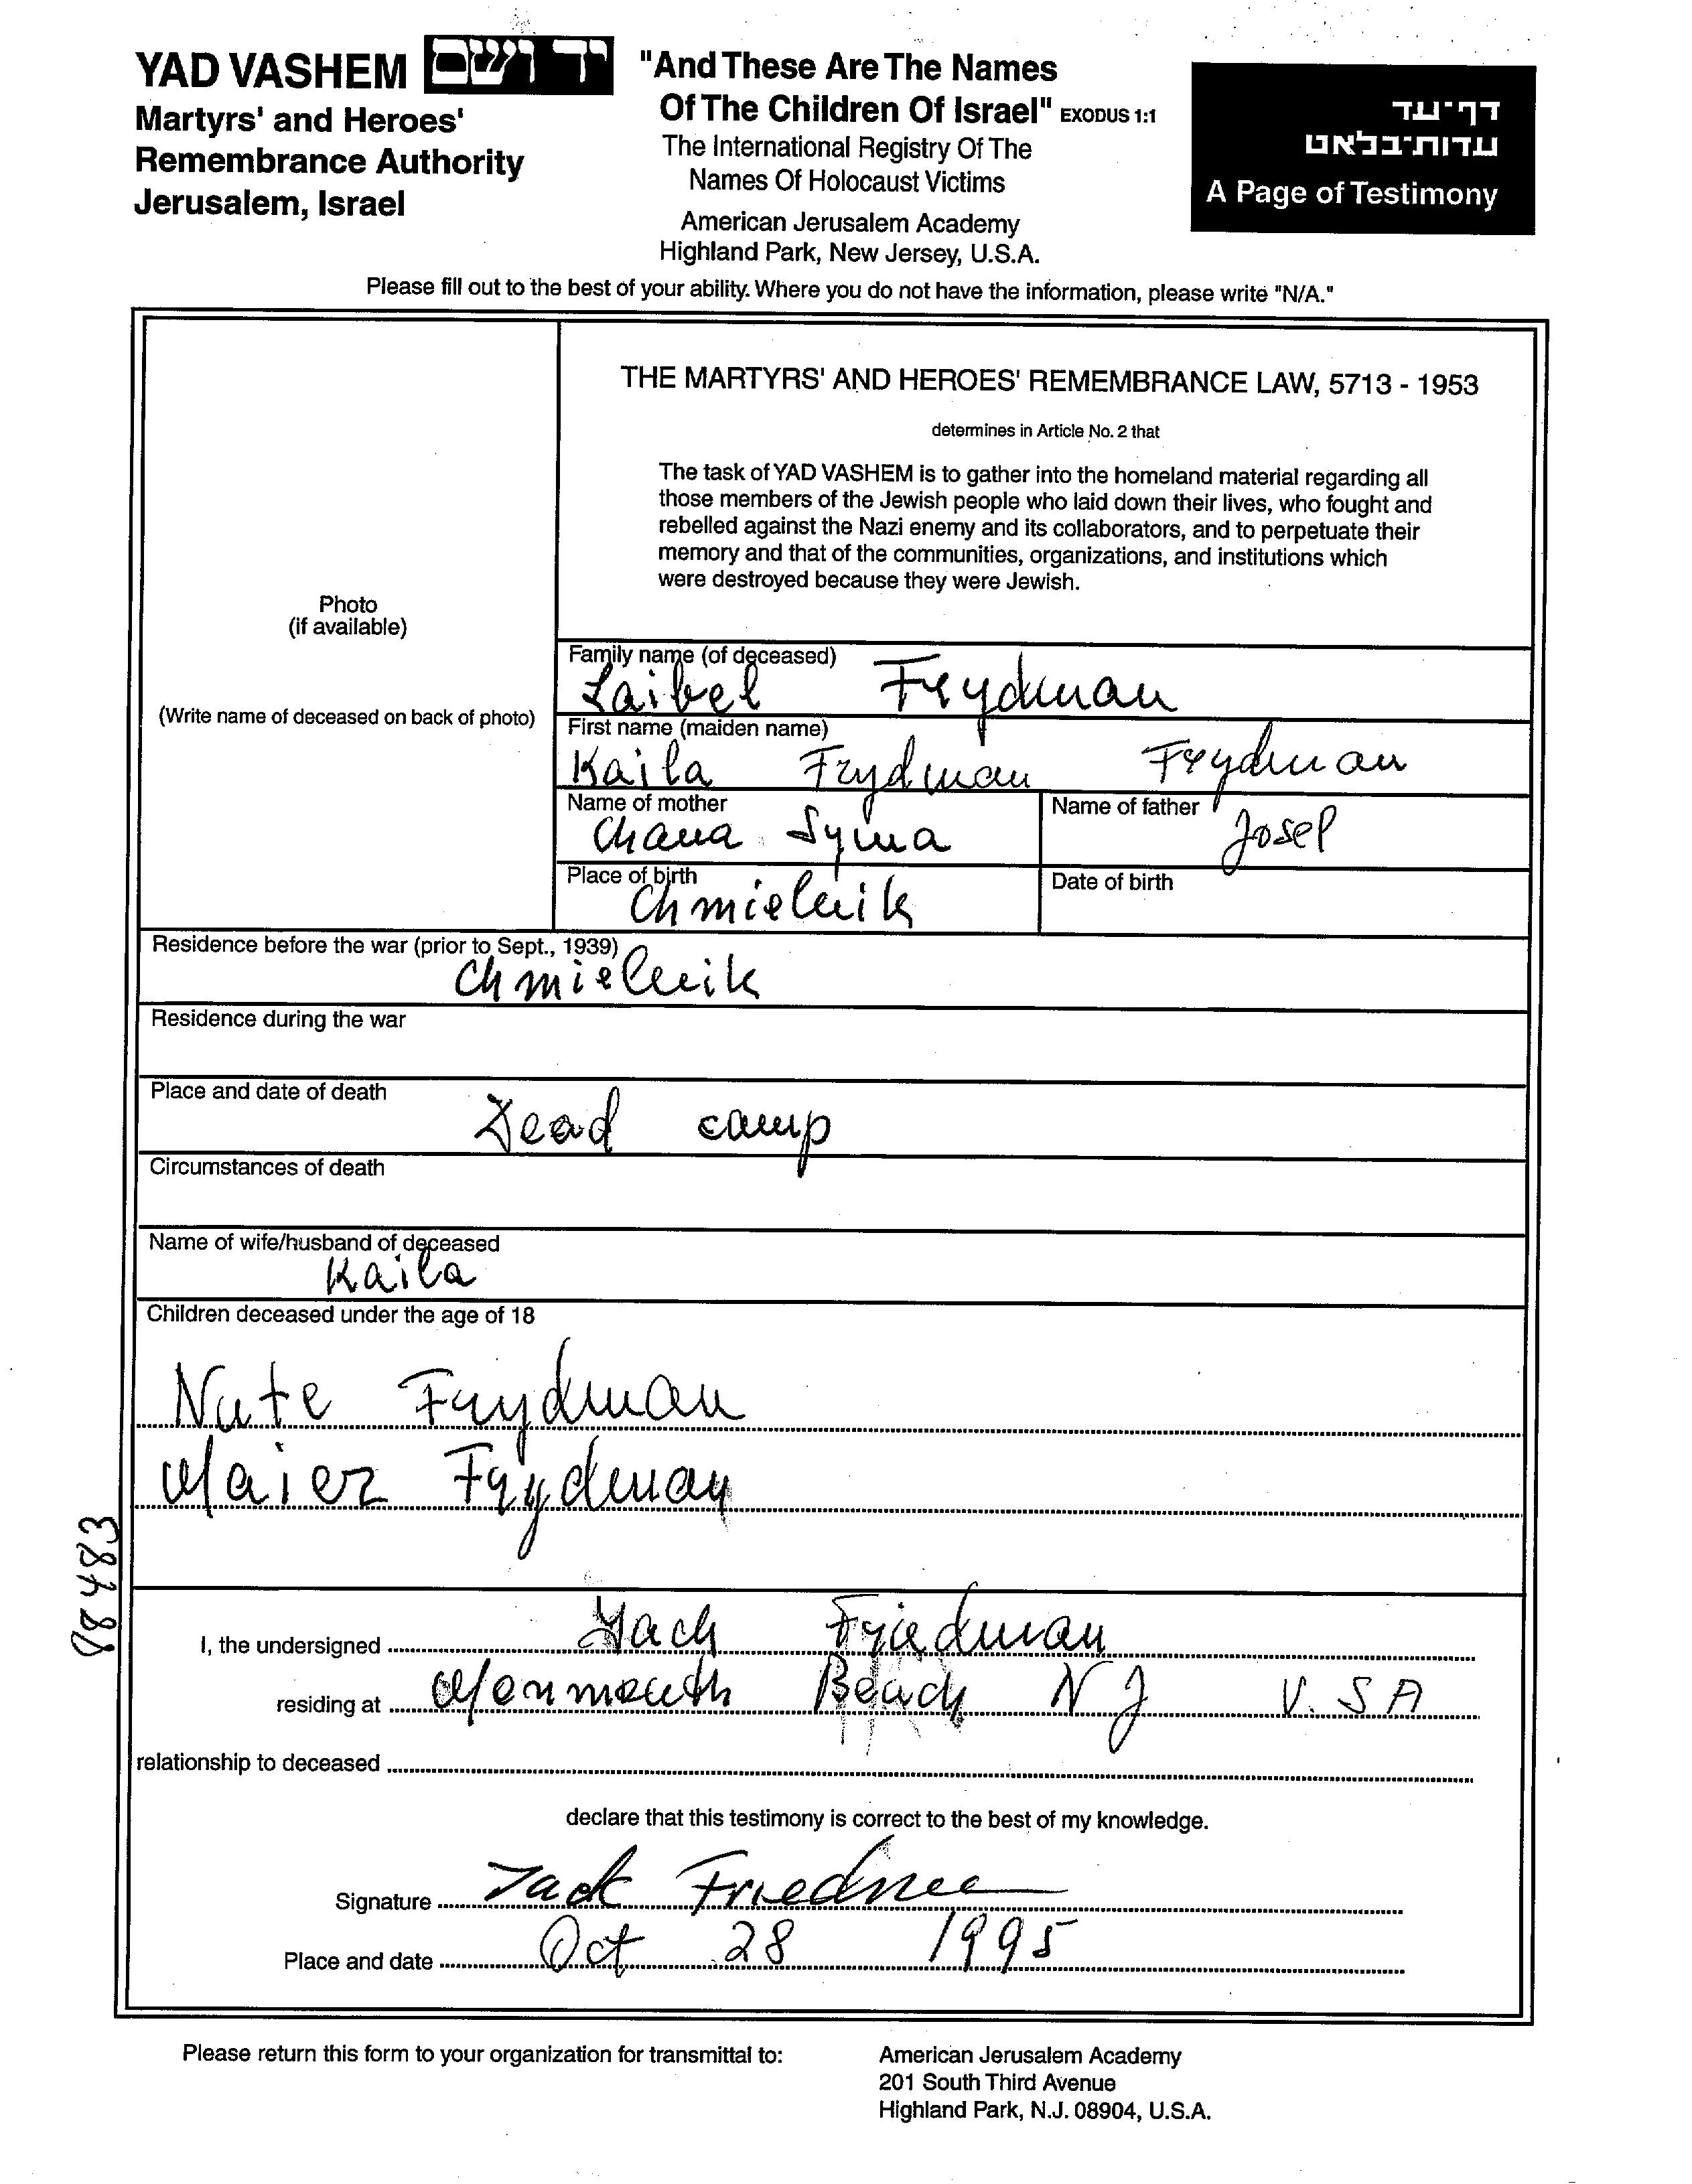 YAD VASHEM יד ושם
Martyrs' and Heroes'
Remembrance Authority
Jerusalem, Israel
"And These Are The Names
Of The Children Of Israel" EXODUS 1:1
The International Registry Of The
Names Of Holocaust Victims
American Jerusalem Academy
Highland Park, New Jersey, U.S.A.
דף-עד
עדות-בלאט
A Page of Testimony
Please fill out to the best of your ability. Where you do not have the information, please write "N/A."
Photo
(if available)
(Write name of deceased on back of photo)
THE MARTYRS' AND HEROES' REMEMBRANCE LAW, 5713 - 1953
determines in Article No. 2 that
The task of YAD VASHEM is to gather into the homeland material regarding all
those members of the Jewish people who laid down their lives, who fought and
rebelled against the Nazi enemy and its collaborators, and to perpetuate their
memory and that of the communities, organizations, and institutions which
were destroyed because they were Jewish.
Family name (of deceased)
Laibel Frydman
First name (maiden name)
Kaila Frydman Frydman
Name of mother
Chana Syma
Name of father
Josef
Place of birth
Chmielnik
Date of birth
Residence before the war (prior to Sept., 1939)
Chmielnik
Residence during the war
Place and date of death
Dead camp
Circumstances of death
Name of wife/husband of deceased
Kaila
Children deceased under the age of 18
Nute Frydman
Maier Frydman
88483
I, the undersigned Jack Friedman
residing at Monmouth Beach NJ U.SA
relationship to deceased
declare that this testimony is correct to the best of my knowledge.
Signature Jack Friedman
Place and date Oct 28 1995
Please return this form to your organization for transmittal to:
American Jerusalem Academy
201 South Third Avenue
Highland Park, N.J. 08904, U.S.A.